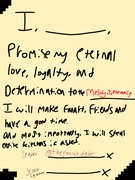 I, ________,
Promise my eternal
love, loyalty, and
Determination to the
I will make Fanart, Friends and
have a good time.
and most importantly, I will steal
entire kitchens if asked.
x
x